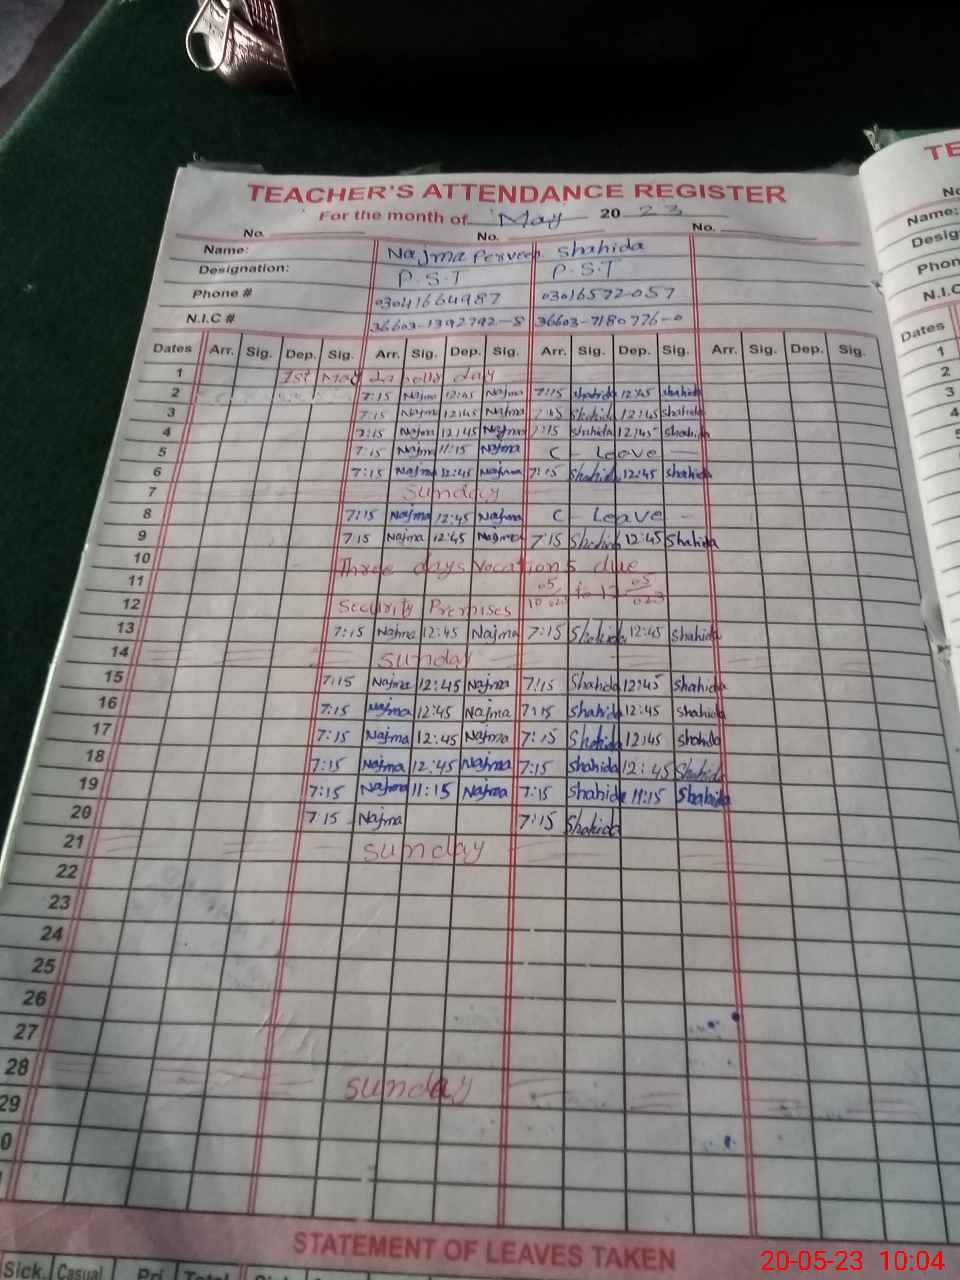 TEACHER'S ATTENDANCE REGISTER
For the month of May 20 23
No. No. No.
Name: Najma Perveen Shahida
Designation: P.S.T P.S.T
Phone # 03041664987 03016572057
N.I.C # 36603-1392792-8 36603-7180776-0
Dates Arr. Sig. Dep. Sig. Arr. Sig. Dep. Sig. Arr. Sig. Dep. Sig. Arr. Sig. Dep. Sig.
1 1st May da holly day
2 7:15 Najma 12:45 Najma 7:15 Shahida 12:45 Shahida
3 7:15 Najma 12:45 Najma 7:15 Shahida 12:45 Shahida
4 7:15 Najma 12:45 Najma 7:15 Shahida 12:45 Shahida
5 7:15 Najma 11:15 Najma C - Leave -
6 7:15 Najma 12:45 Najma 7:15 Shahida 12:45 Shahida
7 Sunday
8 7:15 Najma 12:45 Najma C - Leave -
9 7:15 Najma 12:45 Najma 7:15 Shahida 12:45 Shahida
10 Three days Vocations due
11 10 05/023 to 12 05/023
12 Security Premises
13 7:15 Najma 12:45 Najma 7:15 Shahida 12:45 Shahida
14 Sunday
15 7:15 Najma 12:45 Najma 7:15 Shahida 12:45 Shahida
16 7:15 Najma 12:45 Najma 7:15 Shahida 12:45 Shahida
17 7:15 Najma 12:45 Najma 7:15 Shahida 12:45 Shahida
18 7:15 Najma 12:45 Najma 7:15 Shahida 12:45 Shahida
19 7:15 Najma 11:15 Najma 7:15 Shahida 11:15 Shahida
20 7:15 Najma 7:15 Shahida
21 Sunday
22
23
24
25
26
27
28 Sunday
29
0
STATEMENT OF LEAVES TAKEN
Sick. Casual Pri Total
TE
No
Name:
Desig
Phon
N.I.C
Dates
1
2
3
4
20-05-23 10:04